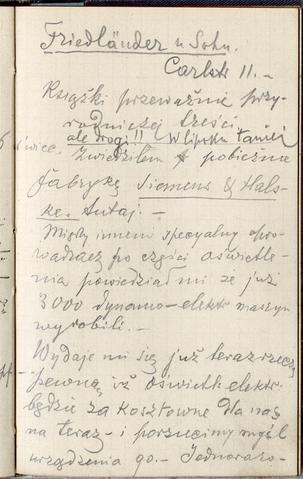 Friedländer u Sohn.
Carlstr 11. —
Książki przeważnie przy-
rodniczej treści
ale drogi!! W lipsku taniej
Zwiedziłem pobieżnie
fabrykę Siemens & Hals-
ke. tutaj. —
Między innemi specyalny opro-
wadzacz po części oświetle-
nia powiedział mi że już
3000 dynamo-elektr maszyn
wyrobili. —
Wydaje mi się już teraz rzeczą
pewną iż oświetl elektr.
będzie za kosztowne dla nas
na teraz - i porzucimy myśl
urządzenia go. — Jednorazo-